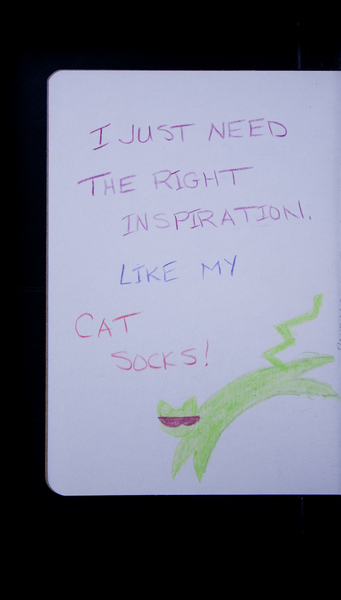 I JUST NEED
THE RIGHT
INSPIRATION.
LIKE MY
CAT
SOCKS!